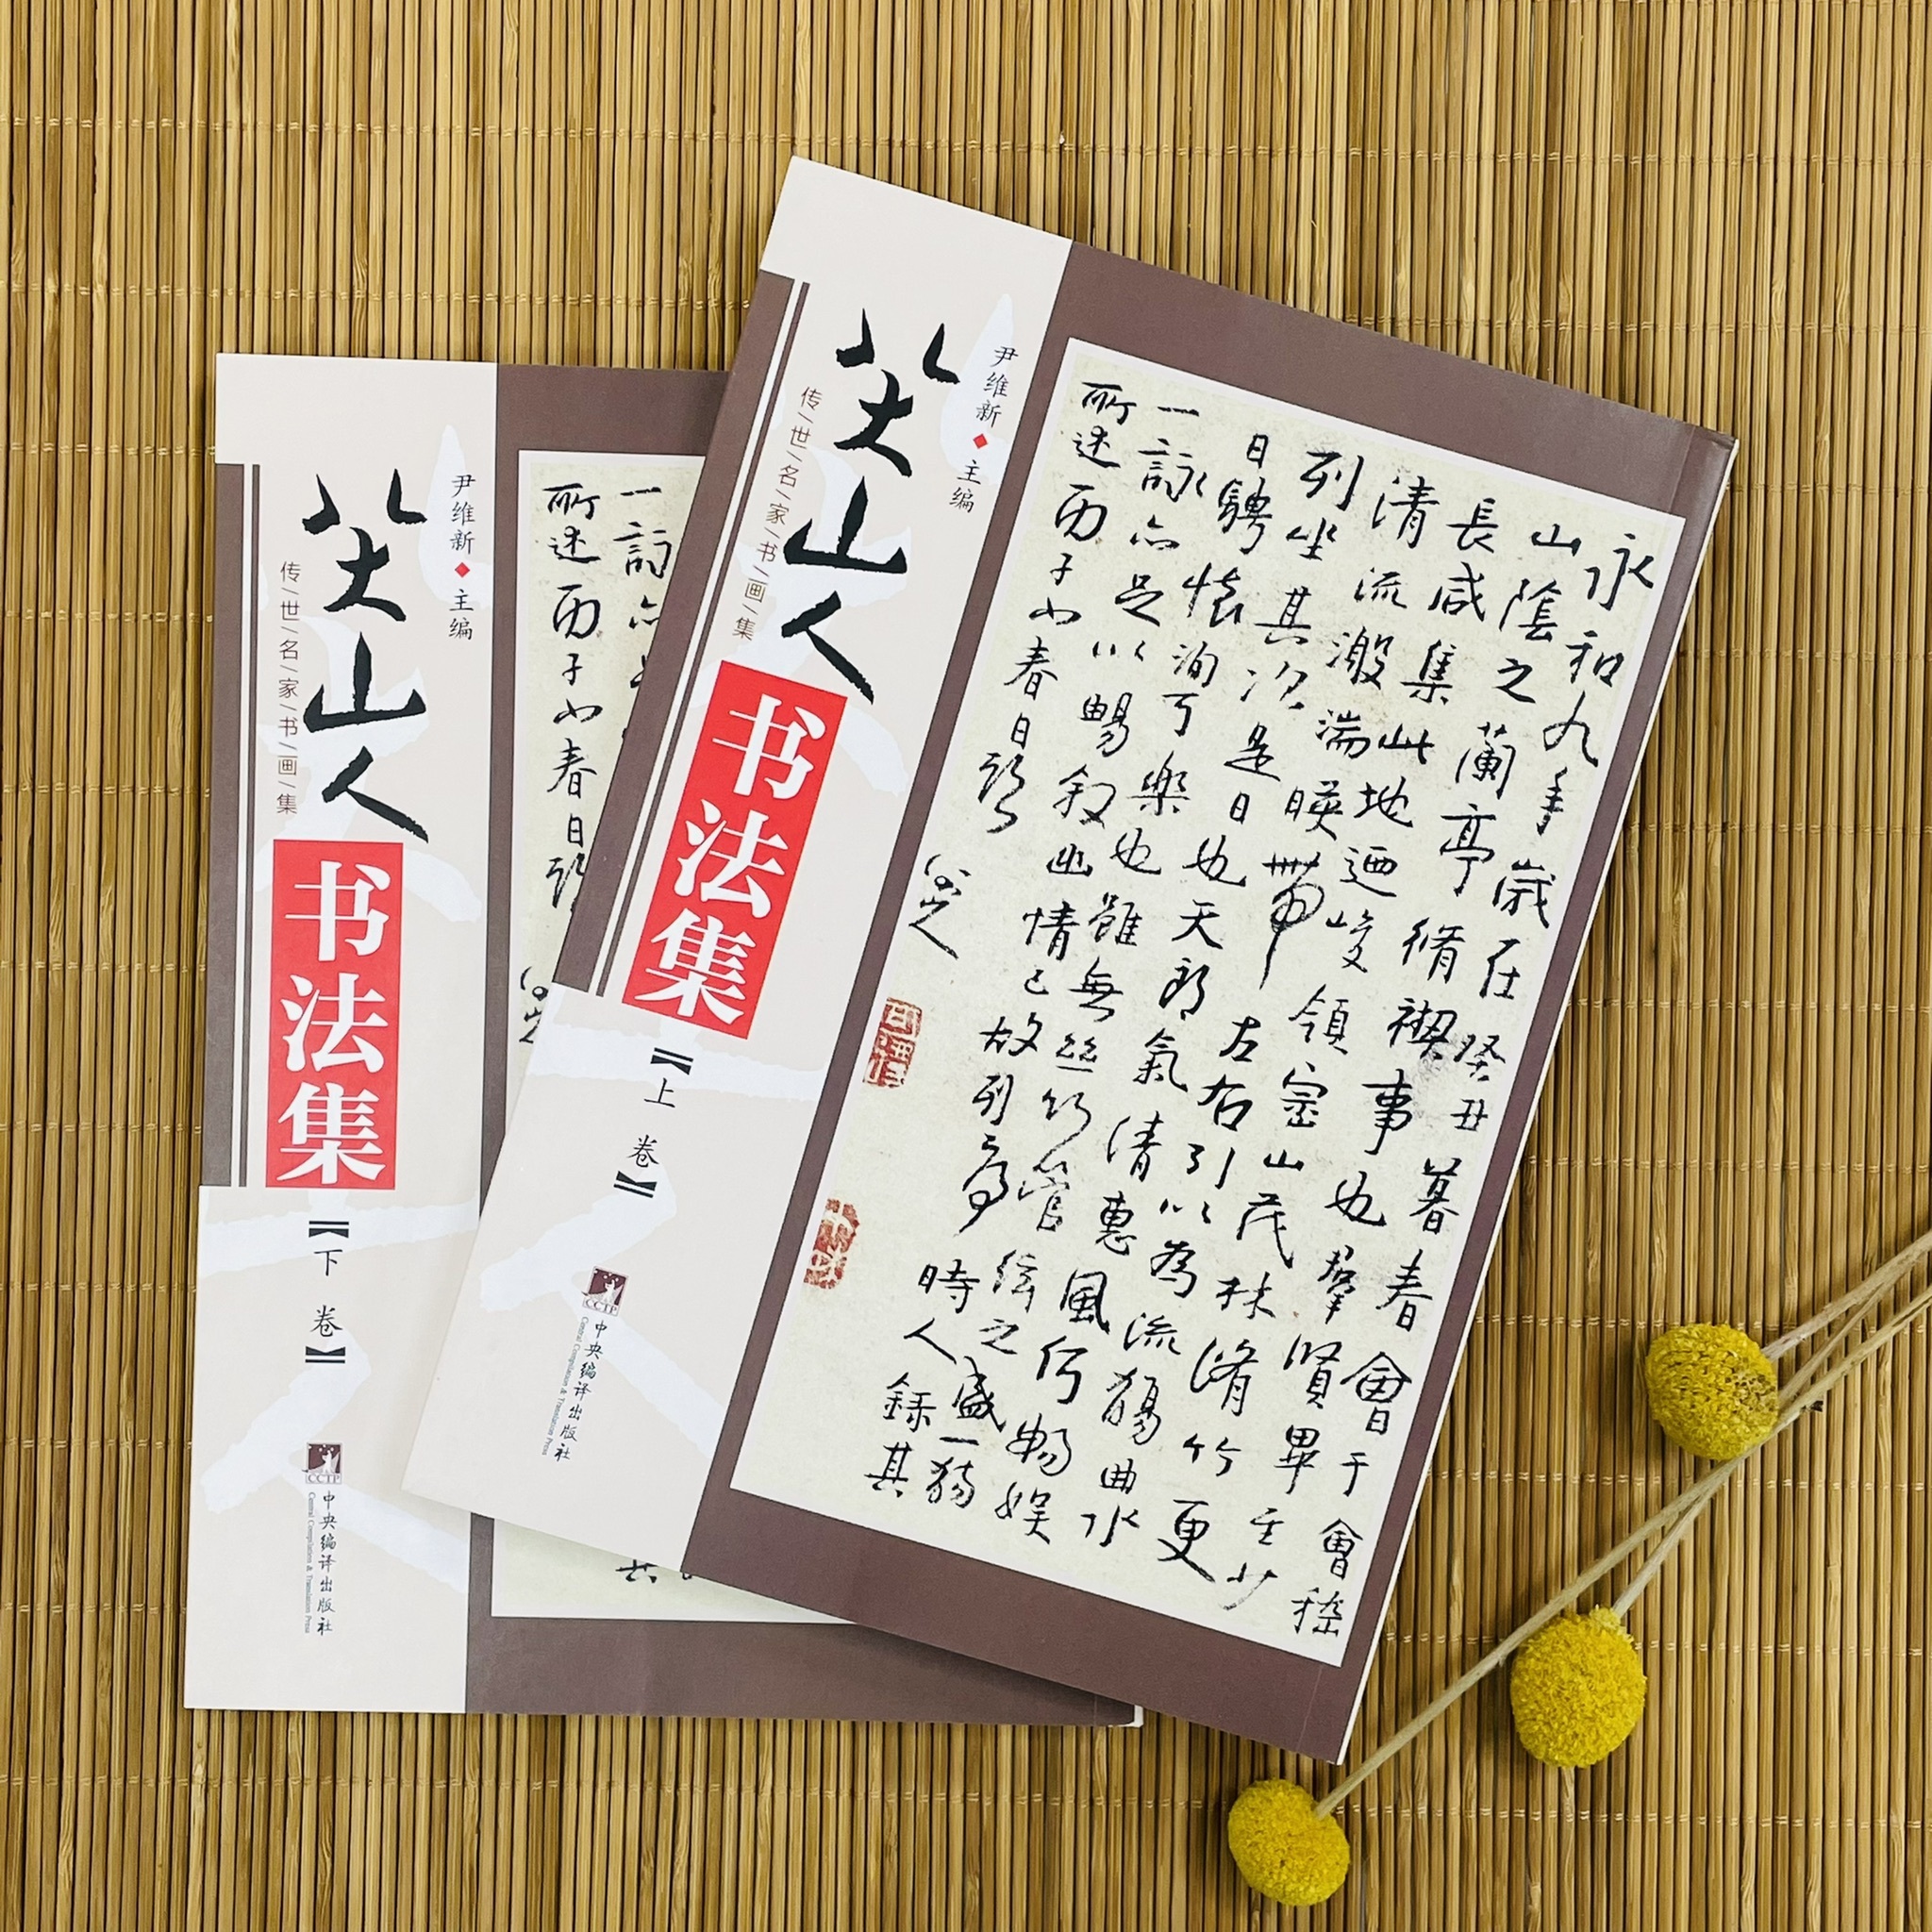 尹维新◆主编
八大山人
传/世/名/家/书/画/集
书法集
【上卷】
CCTP
中央编译出版社
Central Compilation & Translation Press
永和九年歲在癸丑暮春會于會稽
山陰之蘭亭脩禊事也羣賢畢至少
長咸集此地迺峻領崇山茂林脩竹更
清流激湍暎帶左右引以為流觴曲水
列坐其次是日也天朗氣清惠風何暢娛
日騁懷洵可樂也雖無絲竹管弦之盛一觴
一詠亦足以暢叙幽情已故列序時人錄其
所述丙子小春日
尹维新◆主编
八大山人
传/世/名/家/书/画/集
书法集
【下卷】
CCTP
中央编译出版社
Central Compilation & Translation Press
一詠亦
所述丙子小春日